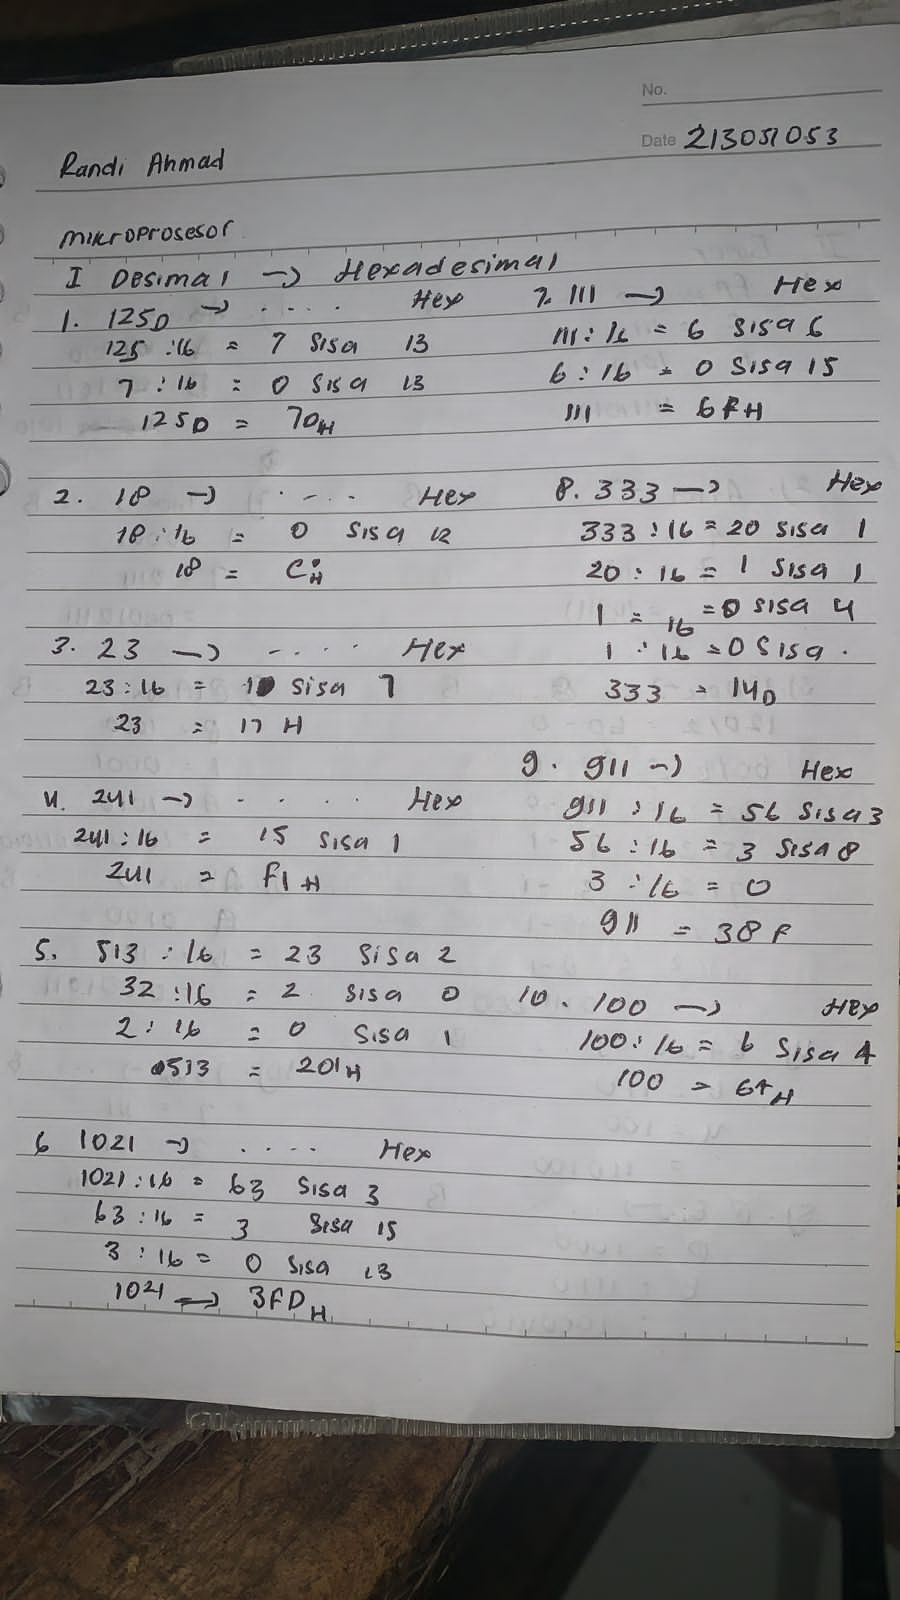 No.
Date 213051053
Randi Ahmad
mikroprosesor
I Desimal -> Hexadesimal
1. 125D -> ..... Hex
125 :16 = 7 Sisa 13
7 : 16 = 0 Sisa 13
125D = 7DH
2. 18 -> . - . . . Hex
18 : 16 = 0 Sisa 12
18 = CH
3. 23 -> ..... Hex
23 : 16 = 1 Sisa 7
23 = 17 H
4. 241 -> . . . . Hex
241 : 16 = 15 Sisa 1
241 = F1H
5. 513 : 16 = 23 Sisa 2
32 :16 = 2 Sisa 0
2 : 16 = 0 Sisa 1
513 = 201H
6 1021 -> .... Hex
1021 :16 = 63 Sisa 3
63 :16 = 3 Sisa 15
3 : 16 = 0 Sisa 13
1021 -> 3FDH
7. 111 -> Hex
111 : 16 = 6 Sisa 6
6 : 16 = 0 Sisa 15
111 = 6FH
8. 333 -> Hex
333 : 16 = 20 sisa 1
20 : 16 = 1 Sisa 1
1 = 16 = 0 sisa 4
1 : 16 = 0 Sisa .
333 = 14D
9. 911 -> Hex
911 : 16 = 56 Sisa 3
56 : 16 = 3 Sisa 8
3 : 16 = 0
911 = 38F
10. 100 -> Hex
100 : 16 = 6 Sisa 4
100 = 64H